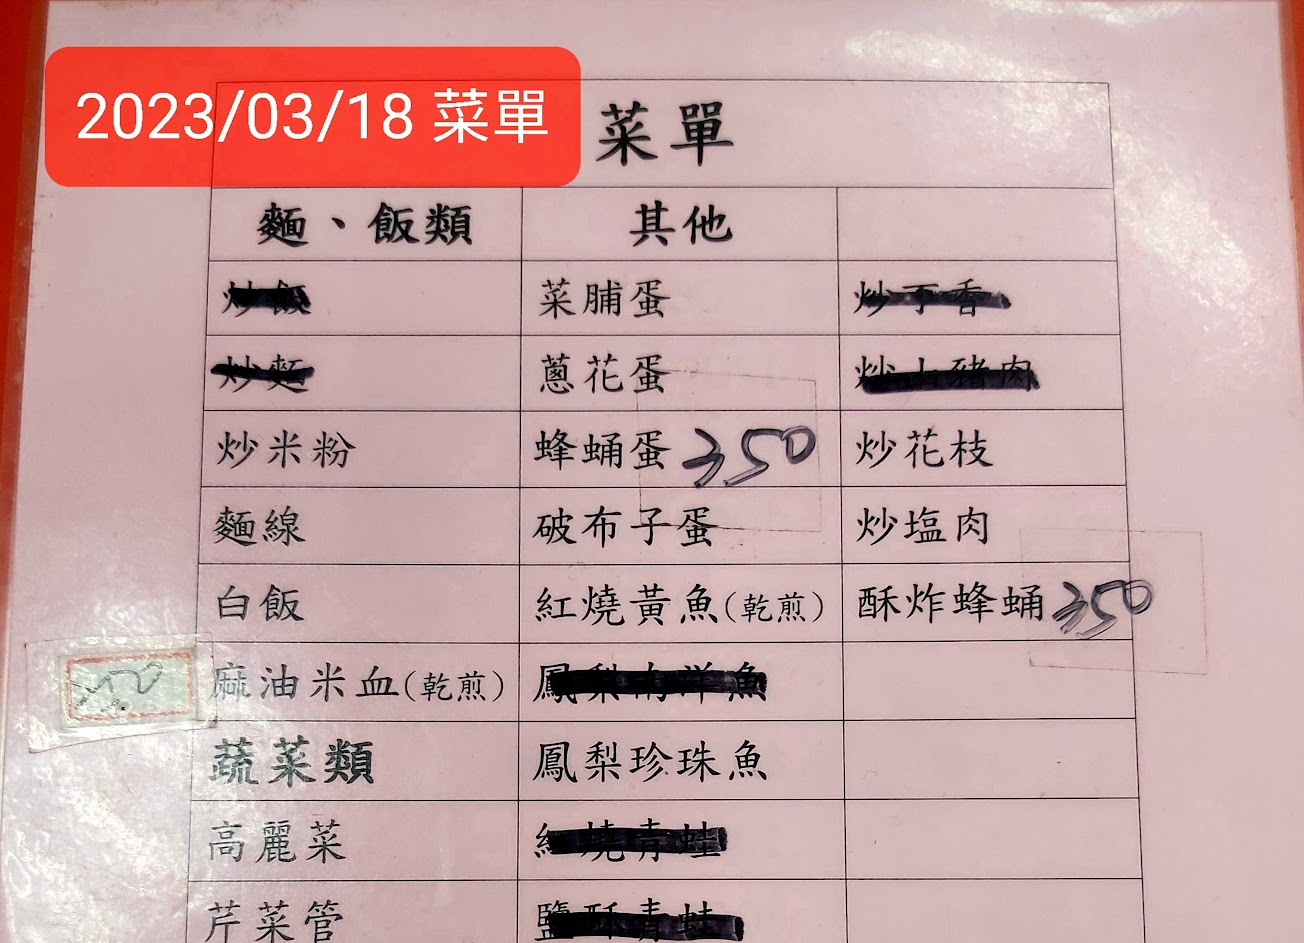 2023/03/18 菜單
菜單
麵、飯類 其他
炒飯 菜脯蛋 炒丁香
炒麵 蔥花蛋 炒山豬肉
炒米粉 蜂蛹蛋 350 炒花枝
麵線 破布子蛋 炒塩肉
白飯 紅燒黃魚(乾煎) 酥炸蜂蛹 350
麻油米血(乾煎) 鳳梨南洋魚
蔬菜類 鳳梨珍珠魚
高麗菜 紅燒青蛙
芹菜管 鹽酥青蛙